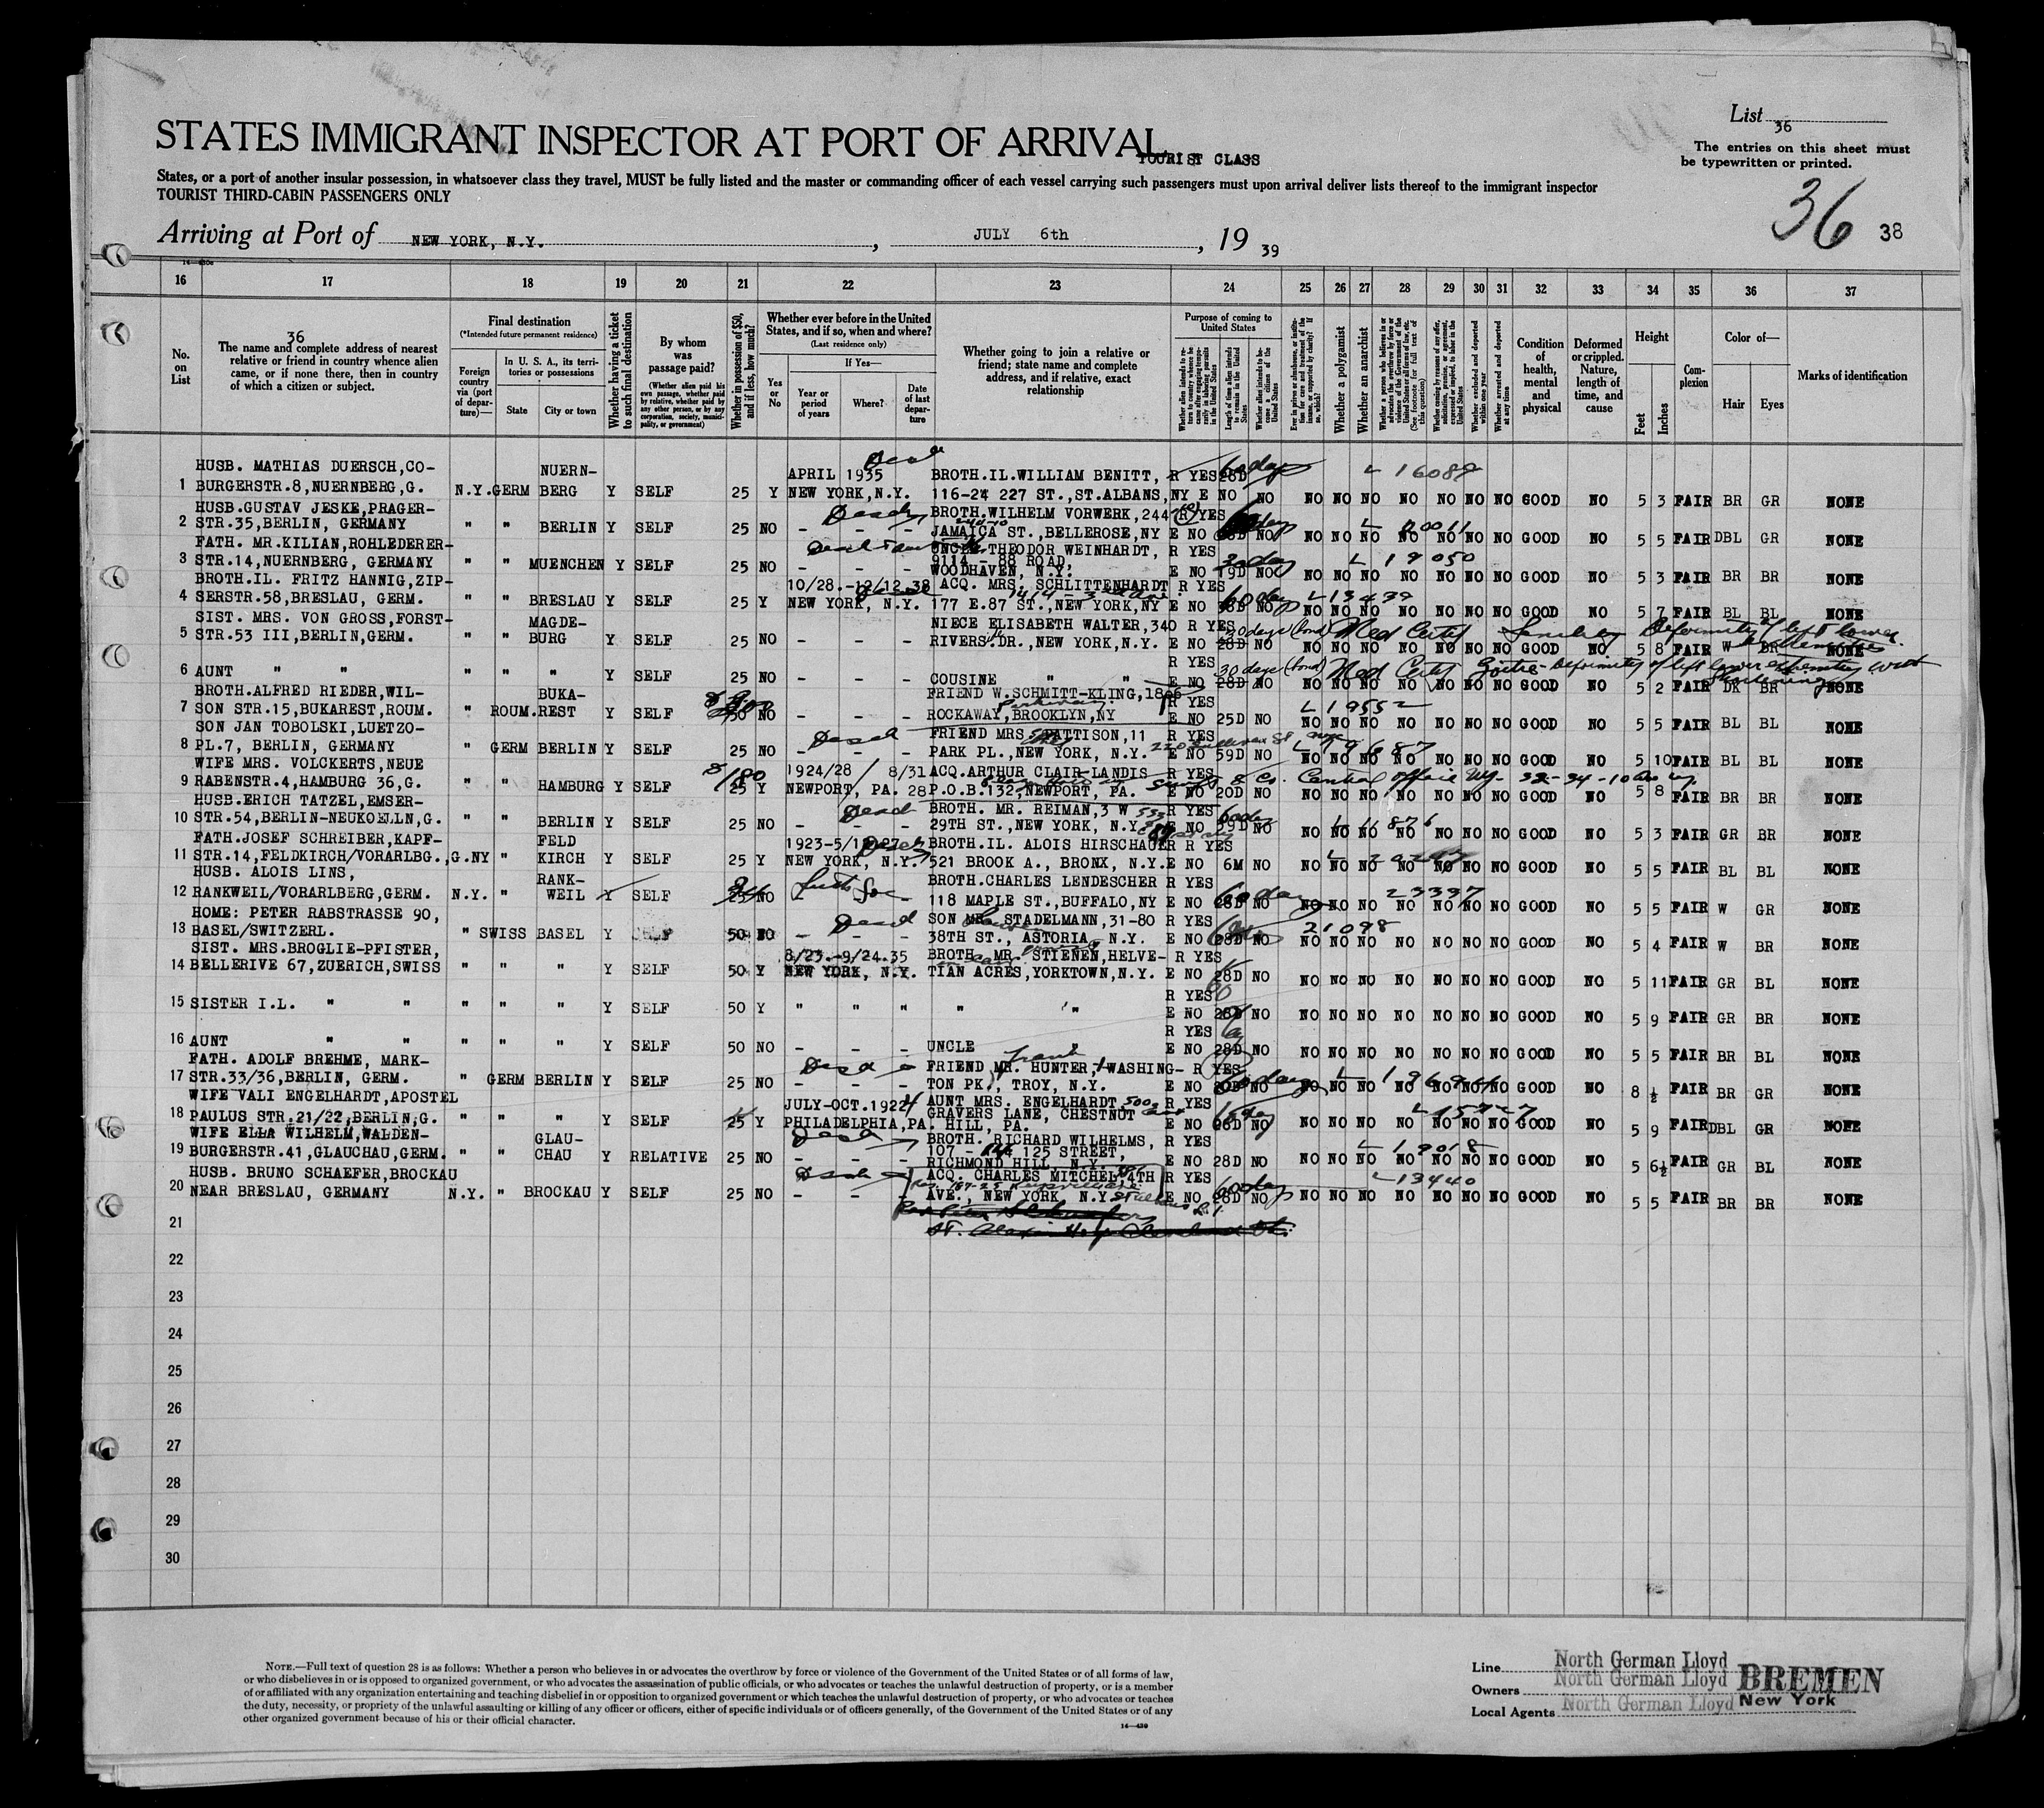 List 36
STATES IMMIGRANT INSPECTOR AT PORT OF ARRIVAL
TOURIST CLASS
The entries on this sheet must
be typewritten or printed.
States, or a port of another insular possession, in whatsoever class they travel, MUST be fully listed and the master or commanding officer of each vessel carrying such passengers must upon arrival deliver lists thereof to the immigrant inspector
TOURIST THIRD-CABIN PASSENGERS ONLY
36 38
Arriving at Port of NEW YORK, N.Y., JULY 6th, 19 39
16 17 18 19 20 21 22 23 24 25 26 27 28 29 30 31 32 33 34 35 36 37
No. on List
36
The name and complete address of nearest relative or friend in country whence alien came, or if none there, then in country of which a citizen or subject.
Final destination
(*Intended future permanent residence)
Foreign country via (port of departure)—
In U. S. A., its territories or possessions
State
City or town
Whether having a ticket to such final destination
By whom was passage paid?
(Whether alien paid his own passage, whether paid by relative, whether paid by any other person, or by any corporation, society, municipality, or government)
Whether in possession of $50, and if less, how much?
Whether ever before in the United States, and if so, when and where?
(Last residence only)
Yes or No
If Yes—
Year or period of years
Where?
Date of last departure
Whether going to join a relative or friend; state name and complete address, and if relative, exact relationship
Purpose of coming to United States
Length of time alien intends to remain in the United States
Whether alien intends to become a citizen of the United States
Whether a polygamist
Whether an anarchist
Whether excluded and deported within one year
Whether arrested and deported at any time
Condition of health, mental and physical
Deformed or crippled. Nature, length of time, and cause
Height
Feet
Inches
Complexion
Color of—
Hair
Eyes
Marks of identification
HUSB. MATHIAS DUERSCH,CO- NUERN- APRIL 1935 BROTH.IL.WILLIAM BENITT, R YES 28D 60 days
1 BURGERSTR.8,NUERNBERG,G. N.Y. GERM BERG Y SELF 25 Y NEW YORK,N.Y. 116-24 227 ST.,ST.ALBANS,NY E NO NO NO NO NO NO NO NO NO GOOD NO 5 3 FAIR BR GR NONE
HUSB.GUSTAV JESKE,PRAGER- BROTH.WILHELM VORWERK,244 R YES
2 STR.35,BERLIN, GERMANY " " BERLIN Y SELF 25 NO - - - JAMAICA ST., BELLEROSE,NY E NO NO NO NO NO NO NO NO NO GOOD NO 5 5 FAIR DBL GR NONE
FATH. MR.KILIAN,ROHLEDERER- UNCLE THEODOR WEINHARDT, R YES
3 STR.14,NUERNBERG, GERMANY " " MUENCHEN Y SELF 25 NO - - - 9114 - 88 ROAD, WOODHAVEN, N.Y. E NO 19D NO NO NO NO NO NO NO NO GOOD NO 5 3 FAIR BR BR NONE
L 19050
BROTH.IL. FRITZ HANNIG,ZIP- 10/28.-12/12.38 ACQ. MRS. SCHLITTENHARDT R YES
4 SERSTR.58,BRESLAU, GERM. " " BRESLAU Y SELF 25 Y NEW YORK, N.Y. 177 E.87 ST.,NEW YORK,NY E NO NO NO NO NO NO NO NO NO GOOD NO 5 7 FAIR BL BL NONE
SIST. MRS. VON GROSS,FORST- MAGDE- NIECE ELISABETH WALTER,340 R YES
5 STR.53 III,BERLIN,GERM. " " BURG Y SELF 25 NO - - - RIVERS.DR.,NEW YORK,N.Y. E NO 28D NO NO NO NO NO NO NO NO GOOD NO 5 8 FAIR W BR NONE
30 days (bond) Med Certif Deformity of left lower
R YES 30 days (bond) Med Certif Goitre - Deformity of left lower extremity with shortening
6 AUNT " " " " " Y SELF 25 NO - - - COUSINE " " E NO 28D NO NO NO NO NO NO NO NO GOOD NO 5 2 FAIR DK BR NONE
BROTH.ALFRED RIEDER,WIL- BUKA- FRIEND W.SCHMITT-KLING,1866 R YES
7 SON STR.15,BUKAREST,ROUM. " ROUM. REST Y SELF NO - - - ROCKAWAY,BROOKLYN,NY E NO 25D NO NO NO NO NO NO NO NO GOOD NO 5 5 FAIR BL BL NONE
Parkway L 19552
SON JAN TOBOLSKI,LUETZO- FRIEND MRS. PATTISON,11 R YES
8 PL.7, BERLIN, GERMANY " GERM BERLIN Y SELF 25 NO - - - PARK PL.,NEW YORK, N.Y. E NO 59D NO NO NO NO NO NO NO NO GOOD NO 5 10 FAIR BL BL NONE
WIFE MRS. VOLCKERTS,NEUE 1924/28 8/31 ACQ.ARTHUR CLAIR LANDIS R YES
9 RABENSTR.4,HAMBURG 36,G. " " HAMBURG Y SELF 25 Y NEWPORT, PA. 28 P.O.B.132,NEWPORT, PA. E NO 20D NO NO NO NO NO NO NO NO GOOD NO 5 8 FAIR BR BR NONE
HUSB.ERICH TATZEL,EMSER- BROTH. MR. REIMAN,3 W R YES
10 STR.54,BERLIN-NEUKOELLN,G. " " BERLIN Y SELF 25 NO - - - 29TH ST.,NEW YORK, N.Y. E NO NO NO NO NO NO NO NO NO GOOD NO 5 3 FAIR GR BR NONE
FATH.JOSEF SCHREIBER,KAPF- FELD BROTH.IL. ALOIS HIRSCHAUER R YES
11 STR.14,FELDKIRCH/VORARLBG.,G. NY " KIRCH Y SELF 25 Y NEW YORK, N.Y. 521 BROOK A., BRONX, N.Y. E NO 6M NO NO NO NO NO NO NO NO GOOD NO 5 5 FAIR BL BL NONE
HUSB. ALOIS LINS, RANK- BROTH.CHARLES LENDESCHER R YES
12 RANKWEIL/VORARLBERG,GERM. N.Y. " WEIL Y SELF NO 118 MAPLE ST.,BUFFALO,NY E NO 28D NO NO NO NO NO NO NO NO GOOD NO 5 5 FAIR W GR NONE
23397
HOME: PETER RABSTRASSE 90, SON STADELMANN,31-80 R YES
13 BASEL/SWITZERL. " SWISS BASEL Y SELF 50 NO - - - 38TH ST., ASTORIA, N.Y. E NO 28D NO NO NO NO NO NO NO NO GOOD NO 5 4 FAIR W BR NONE
21098
SIST. MRS.BROGLIE-PFISTER, 8/23.-9/24.35 BROTH. MR. STIENEN,HELVE- R YES
14 BELLERIVE 67,ZUERICH,SWISS " " " Y SELF 50 Y NEW YORK, N.Y. TIAN ACRES,YORKTOWN,N.Y. E NO 28D NO NO NO NO NO NO NO NO GOOD NO 5 11 FAIR GR BL NONE
R YES
15 SISTER I.L. " " " " " Y SELF 50 Y " " " " " E NO 28D NO NO NO NO NO NO NO NO GOOD NO 5 9 FAIR GR BR NONE
R YES
16 AUNT " " " " " Y SELF 50 NO - - - UNCLE E NO 28D NO NO NO NO NO NO NO NO GOOD NO 5 5 FAIR BR BL NONE
FATH. ADOLF BREHME, MARK- FRIEND MR. HUNTER, WASHING- R YES
17 STR.33/36,BERLIN, GERM. " GERM BERLIN Y SELF 25 NO - - - TON PK., TROY, N.Y. E NO NO NO NO NO NO NO NO NO GOOD NO 8 ½ FAIR BR GR NONE
Frank
WIFE VALI ENGELHARDT,APOSTEL JULY-OCT.1922 AUNT MRS. ENGELHARDT, R YES
18 PAULUS STR.21/22,BERLIN,G. " " " Y SELF 25 Y PHILADELPHIA,PA. GRAVERS LANE, CHESTNUT HILL, PA. E NO NO NO NO NO NO NO NO NO GOOD NO 5 9 FAIR DBL GR NONE
WIFE ELLA WILHELM,WALDEN- GLAU- BROTH. RICHARD WILHELMS, R YES
19 BURGERSTR.41,GLAUCHAU,GERM. " " CHAU Y RELATIVE 25 NO - - - 107 - 125 STREET, RICHMOND HILL, N.Y. E NO 28D NO NO NO NO NO NO NO NO GOOD NO 5 6½ FAIR GR BL NONE
L 19018
HUSB. BRUNO SCHAEFER,BROCKAU ACQ. CHARLES MITCHEL,4TH R YES
20 NEAR BRESLAU, GERMANY N.Y. " BROCKAU Y SELF 25 NO - - - AVE., NEW YORK, N.Y. E NO 28D NO NO NO NO NO NO NO NO GOOD NO 5 5 FAIR BR BR NONE
60 days L 13440
21
22
23
24
25
26
27
28
29
30
NOTE.—Full text of question 28 is as follows: Whether a person who believes in or advocates the overthrow by force or violence of the Government of the United States or of all forms of law,
or who disbelieves in or is opposed to organized government, or who advocates the assassination of public officials, or who advocates or teaches the unlawful destruction of property, or is a member
of or affiliated with any organization entertaining and teaching disbelief in or opposition to organized government or which teaches the unlawful destruction of property, or who advocates or teaches
the duty, necessity, or propriety of the unlawful assaulting or killing of any officer or officers, either of specific individuals or of officers generally, of the Government of the United States or of any
other organized government because of his or their official character.
14—430
Line North German Lloyd
Owners North German Lloyd BREMEN
Local Agents North German Lloyd New York